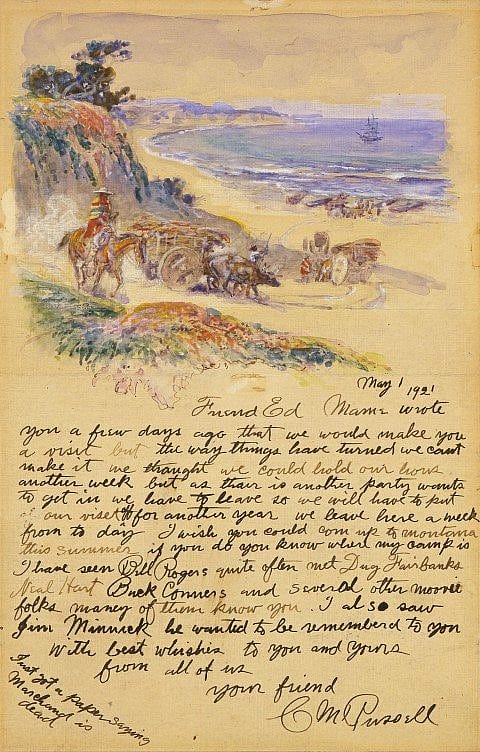 May 1 1921
Friend Ed Mame wrote
you a few days ago that we would make you
a visit but the way things have turned we cant
make it we thaught we could hold our hous
another week but as thair is another party wants
to get in we have to leave so we will have to put
of our viset for another year we leave here a week
from to day I wish you could com up to montana
this summer if you do you know wher my camp is
I have seen Will Rogers quite often met Dug Fairbanks
Neal Hart Buck Conners and severl other moovie
folks maney of them know you. I also saw
Jim Minnick he wanted to be rememberd to you
With best whishes to you and yours
from all of us
your friend
CM Russell
Just got a paper saying
Marchand is
dead